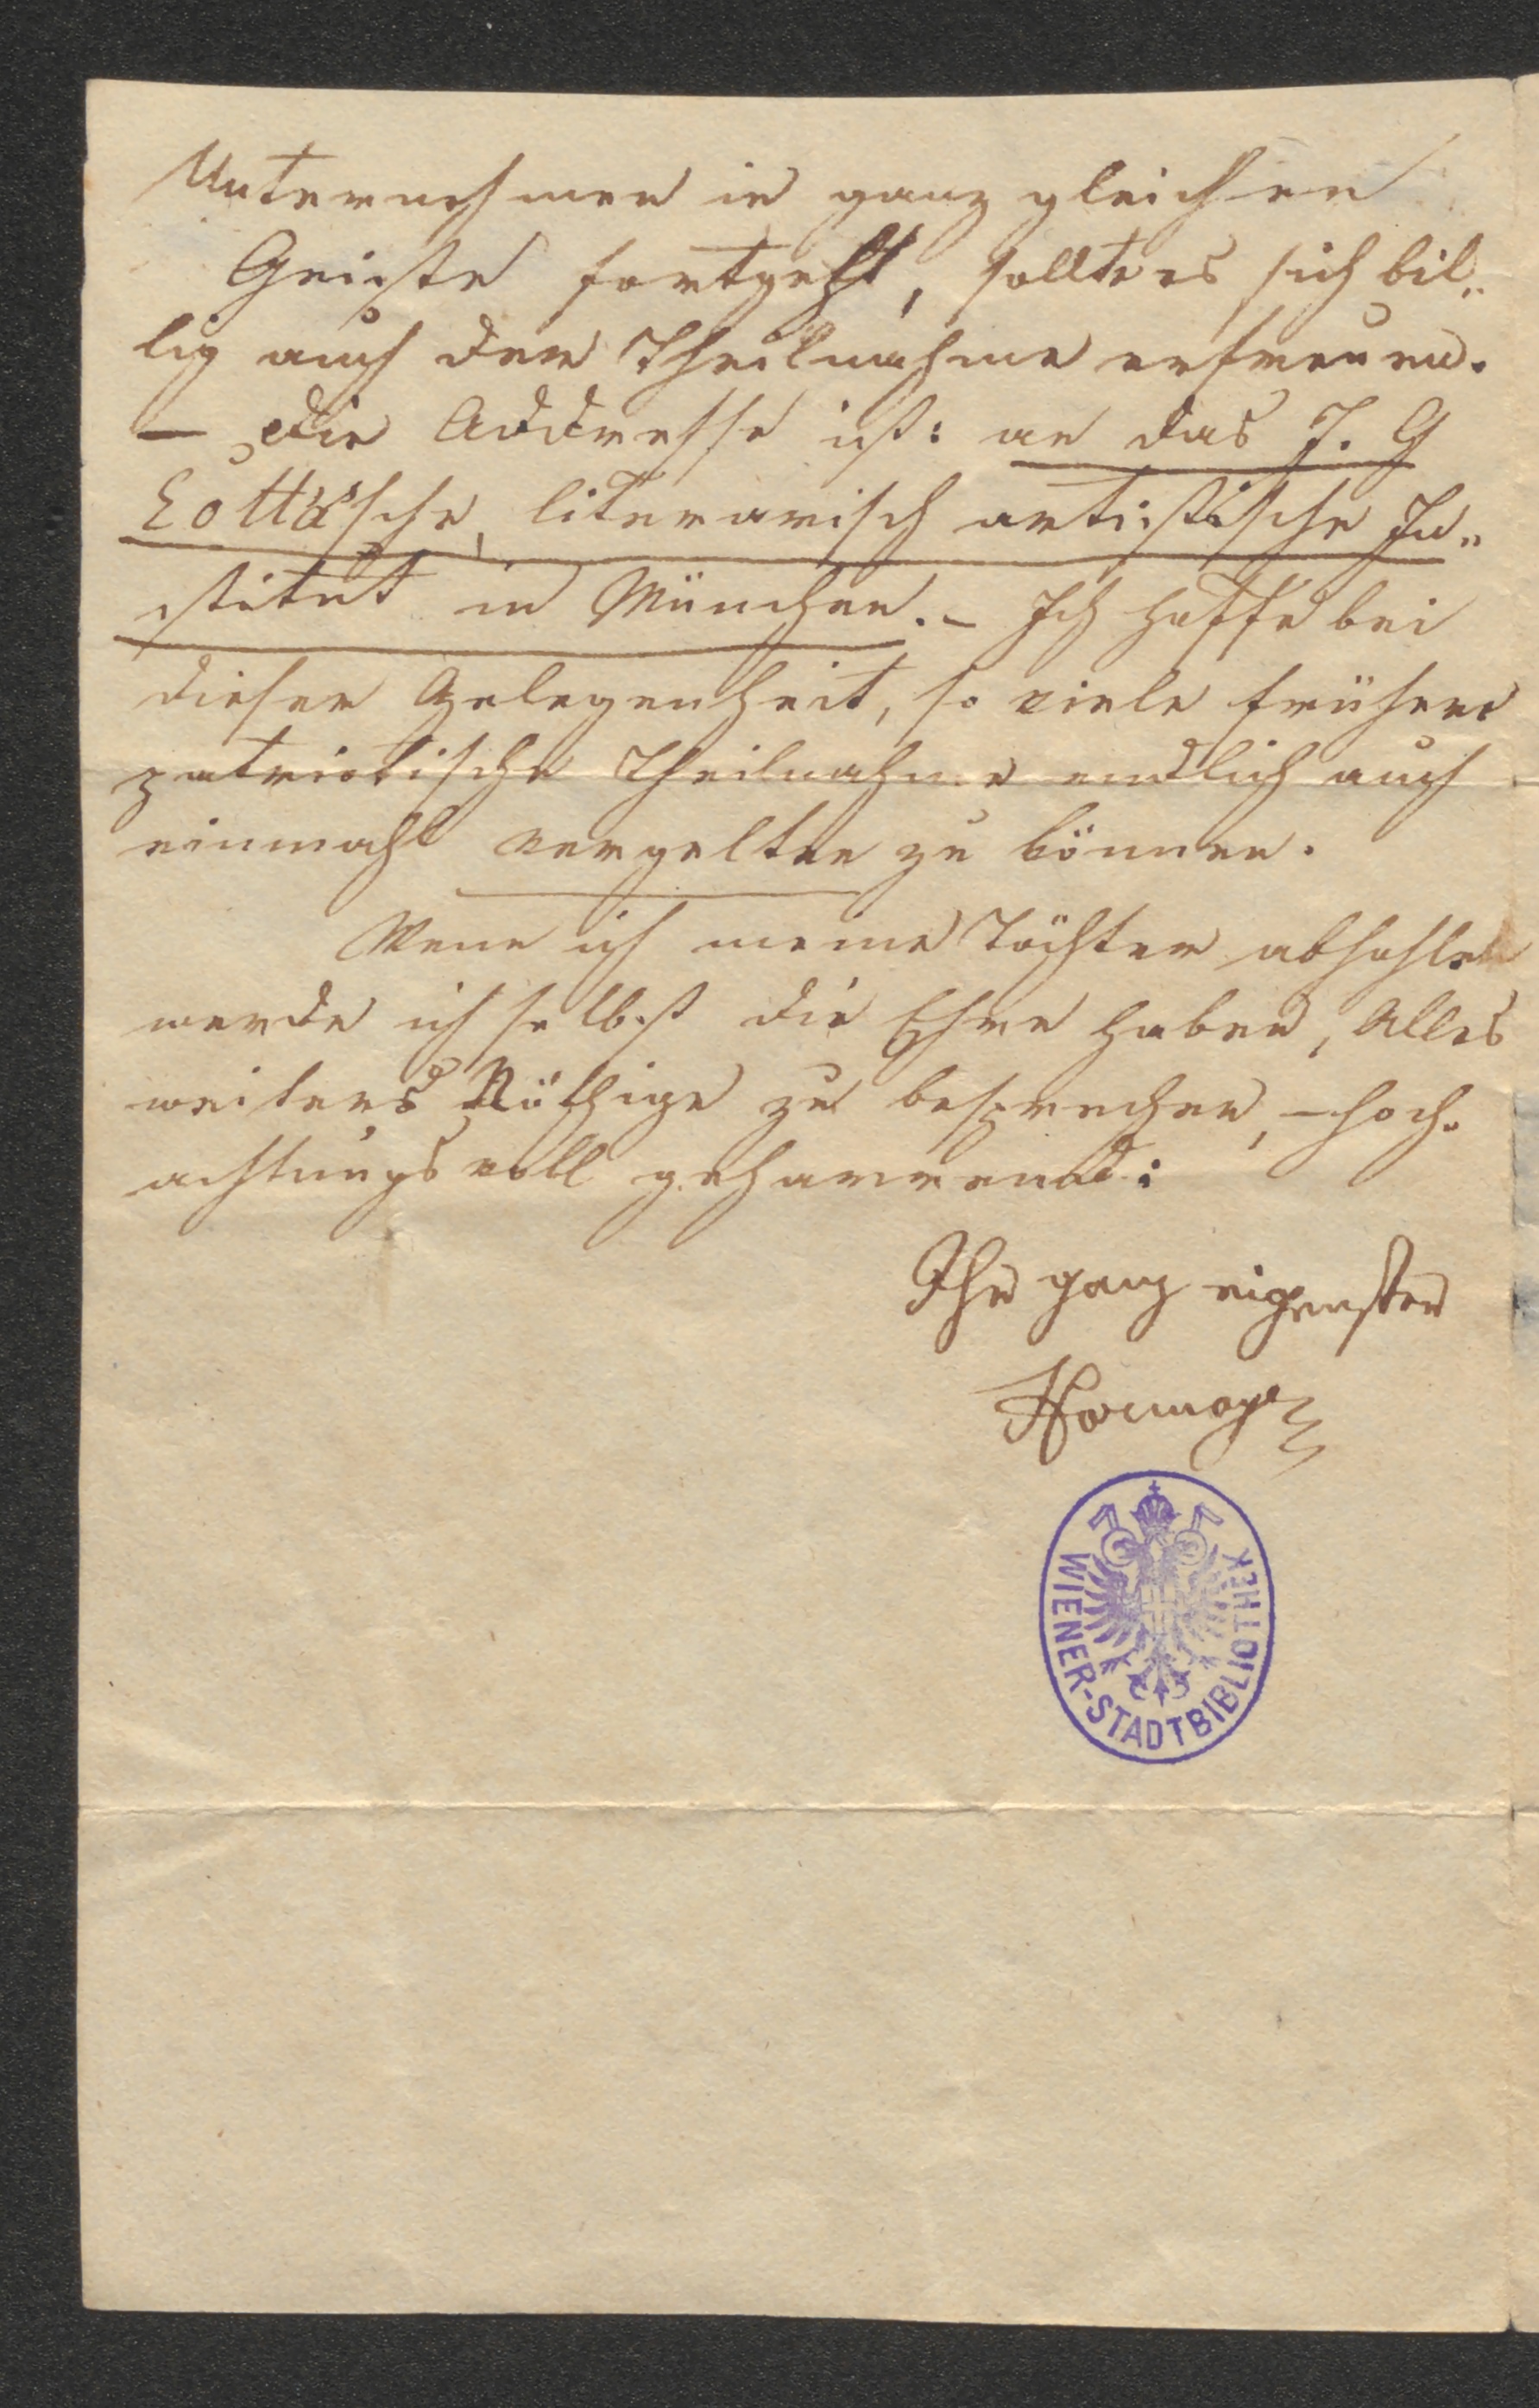 Unternehmen in ganz gleichen
Geiste fortgeht, sollte es sich bil„
lig auch der Theilnahme erfreuen.
– Die Addresse ist: an das J. G
Cotta'sche, literarisch artistische In„
stitut in München. – Ich hoffe bei
dieser Gelegenheit, so viele frühere
patriotische Theilnahme endlich auch
einmahl vergelten zu können.
Wenn ich meine Töchter abhohle
werde ich selbst die Ehre haben, Alles
weiters Nöthige zu besprechen, – hoch„
achtungsvoll geharrend:
Ihr ganz eigenster
Hormayr
WIENER-STADTBIBLIOTHEK